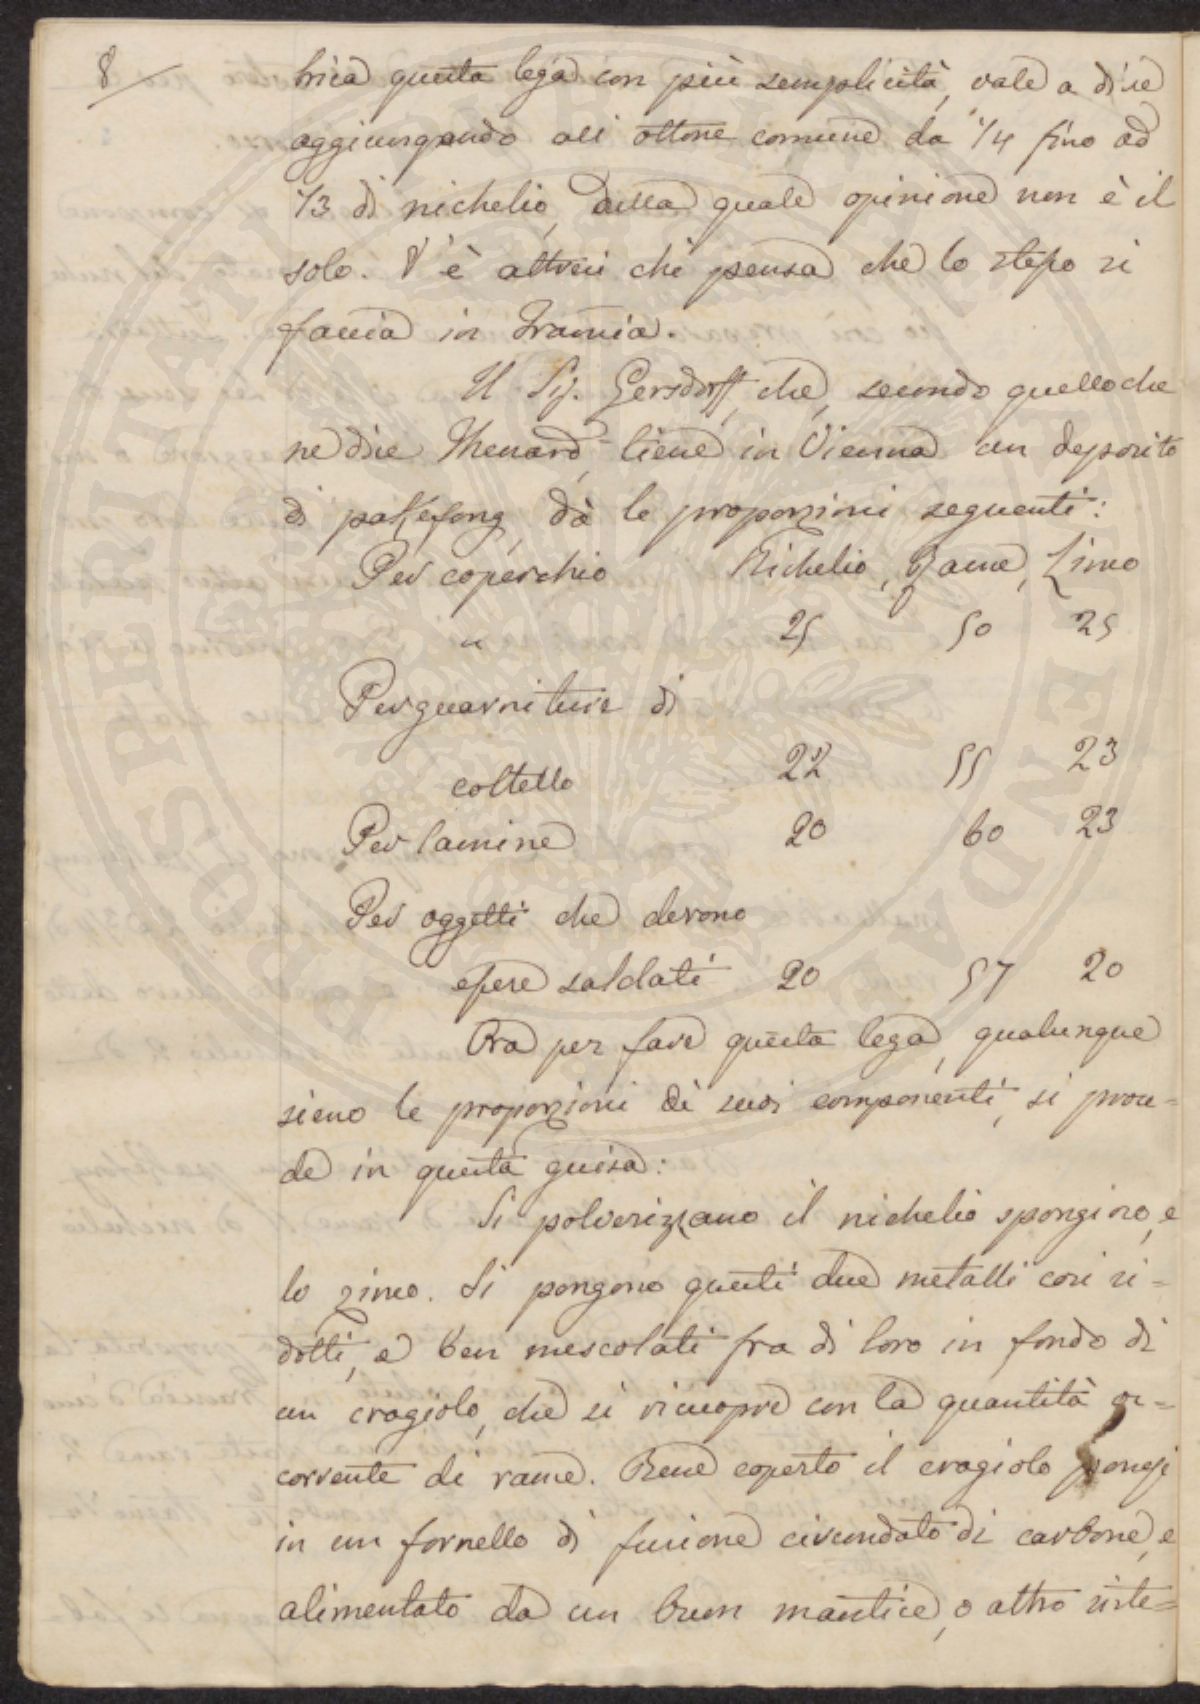 8
brica questa lega con più semplicità, vale a dire
aggiungendo all'ottone comune da 1/4 fino ad
1/3 di nichelio, della quale opinione non è il
solo. V'è altresì chi pensa che lo stesso si
faccia in Francia.
Il Sig. Gersdorff, che, secondo quello che
ne dice Thenard, tiene in Vienna un deposito
di pakfong, dà le proporzioni seguenti:
Per coperchio Nichelio, Rame, Zinco
" 25 50 25
Per guarniture di
coltello 22 55 23
Per lamine 20 60 23
Per oggetti che devono
essere saldati 20 57 20
Ora per fare questa lega, qualunque
sieno le proporzioni di suoi componenti, si proce=
de in questa guisa:
Si polverizzano il nichelio spongioso, e
lo zinco. Si pongono questi due metalli così ri=
dotti, e ben mescolati fra di loro in fondo di
un crogiolo, che si ricuopre con la quantità oc=
corrente di rame. Bene coperto il crogiolo ponesi
in un fornello di fusione circondato di carbone, e
alimentato da un buon mantice, o altro siste=
PROSPERITATI PUBLICAE AUGENDAE